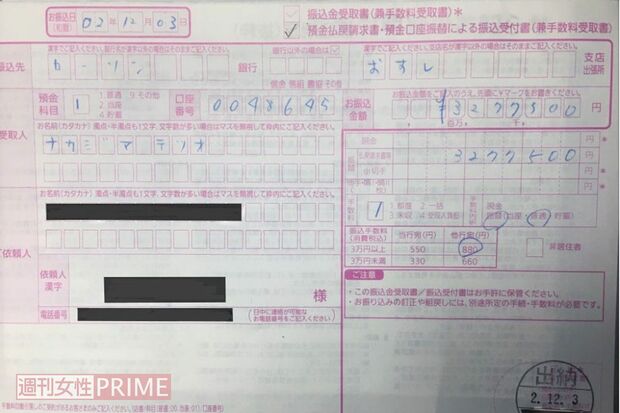 お振込日(和暦) 02年12月03日
振込金受取書(兼手数料受取書)*
預金払戻請求書・預金口座振替による振込受付書(兼手数料受取書)
振込先 カーソン 銀行 おすし 支店 出張所
預金科目 1 1 普通 9 その他 2 当座 4 貯蓄 口座番号 0048645
お振込金額 ¥3277500円
受取人 お名前(カタカナ)濁点・半濁点も1文字、文字数が多い場合はマスを無視して枠内にご記入ください。
ナカジマテリオ
現金 円
払戻請求書等 3277500
小切手
お名前(カタカナ)濁点・半濁点も1文字、文字数が多い場合はマスを無視して枠内にご記入ください。
手数料 1 1 都度 2 一括 3 未収 4 受取人負担 現金
振込手数料(消費税込) 当行宛(円) 他行宛(円)
3万円以上 550 880
3万円未満 330 660
非居住者
ご依頼人
依頼人漢字 様
電話番号 (日中に連絡が可能なお電話番号をご記入ください)
ご注意
・この振込金受取書/振込受付書はお手許に保管ください。
・お振り込みの訂正や組戻しには、別途所定の手続・手数料が必要です。
出納
2.12.3
週刊女性PRIME